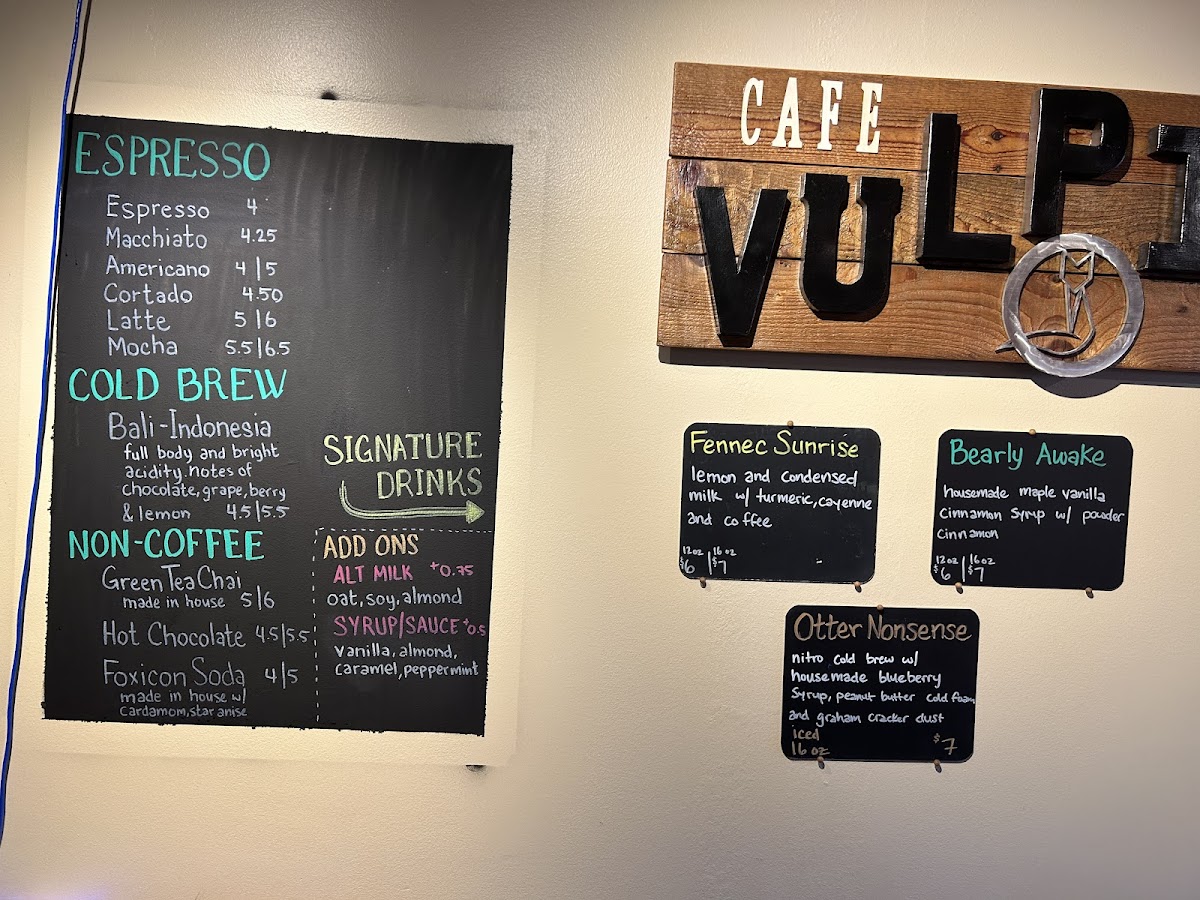 ESPRESSO
Espresso 4
Macchiato 4.25
Americano 4|5
Cortado 4.50
Latte 5|6
Mocha 5.5|6.5
COLD BREW
Bali-Indonesia
full body and bright
acidity. notes of
chocolate, grape, berry
& lemon 4.5|5.5
NON-COFFEE
Green Tea Chai
made in house 5|6
Hot Chocolate 4.5|5.5
Foxicon Soda 4|5
made in house w/
cardamom, star anise
SIGNATURE
DRINKS
ADD ONS
ALT MILK +0.75
oat, soy, almond
SYRUP/SAUCE +0.5
vanilla, almond,
caramel, peppermint
CAFE
VULPI
Fennec Sunrise
lemon and condensed
milk w/ turmeric, cayenne
and coffee
12oz | 16oz
$6 | $7
Bearly Awake
housemade maple vanilla
cinnamon syrup w/ powder
cinnamon
12oz | 16oz
$6 | $7
Otter Nonsense
nitro cold brew w/
housemade blueberry
syrup, peanut butter cold foam
and graham cracker dust
iced
16 oz $7